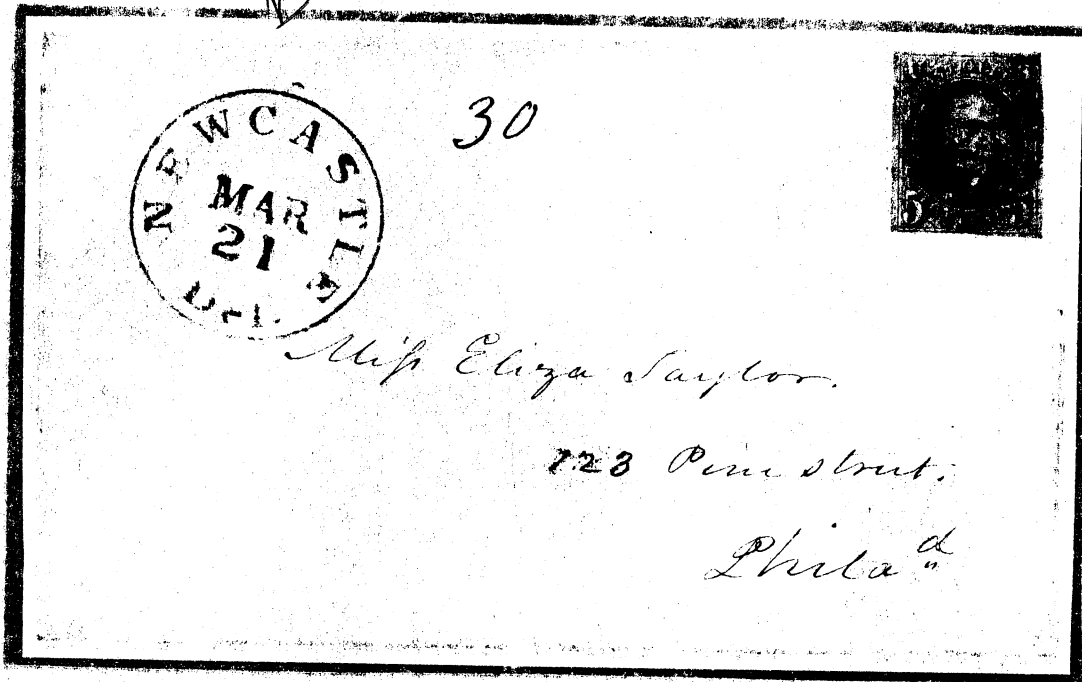 NEWCASTLE
MAR
21
Del.
30
5
Miss Eliza Taylor.
723 Pine street.
Philad